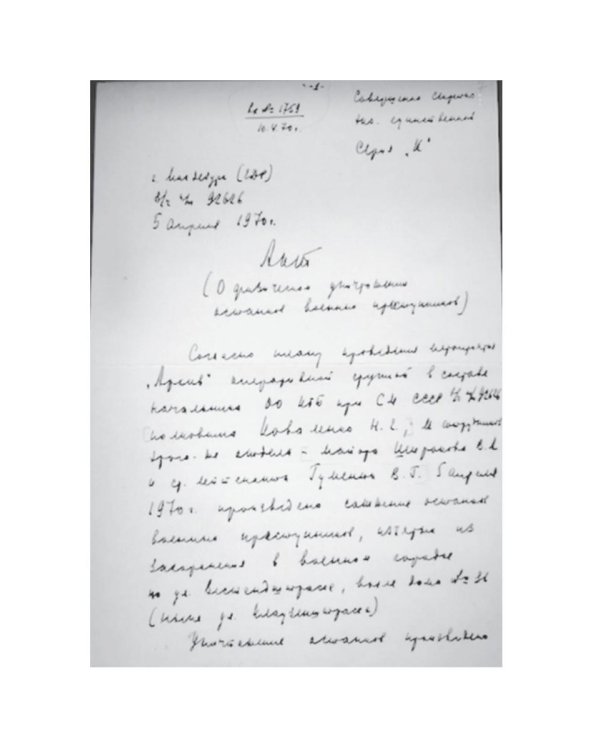 -1-
Вх № 1759
10.4.70г.
Совершенно секретно
экз. единственный
Серия „К"
г. Магдебург (ГДР)
в/ч п/п 92626
5 апреля 1970г.
Акт
(О физическом уничтожении
останков военных преступников)
Согласно плану проведения мероприятия
„Архив" оперативной группой в составе
начальника ОО КГБ при СМ СССР в/ч п/п 92626
полковника Коваленко Н.Г., и сотрудников
того же отдела - майора Широкова В.Н.
и ст. лейтенанта Гуменюк В.Г. 5 апреля
1970г. произведено сожжение останков
военных преступников, изъятых из
захоронения в военном городке
по ул. Вестендштрассе, возле дома № 36
(ныне ул. Клаузенштрассе)
Уничтожение останков произведено